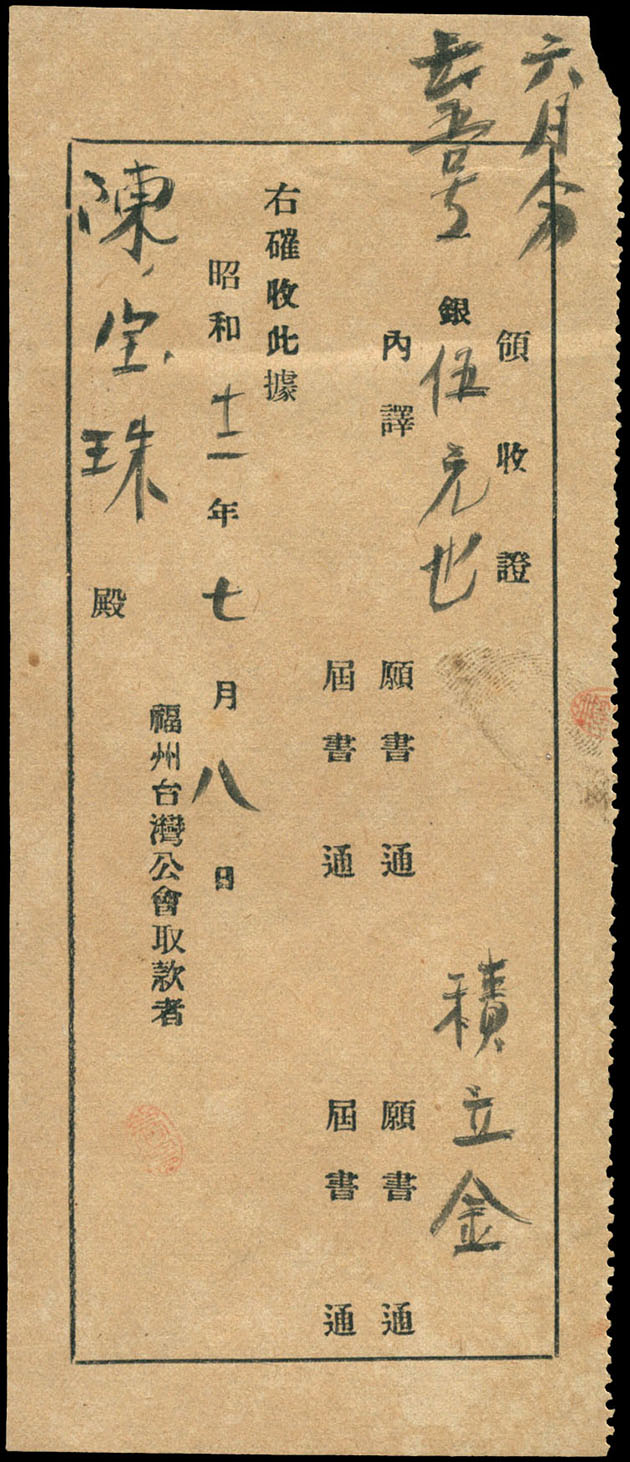 六月分
号
領收證
銀伍元也 積立金
內譯 願書 通 願書 通
屆書 通 屆書 通
右確收此據
昭和十二年七月八日
福州台灣公會取款者
陳宝珠殿